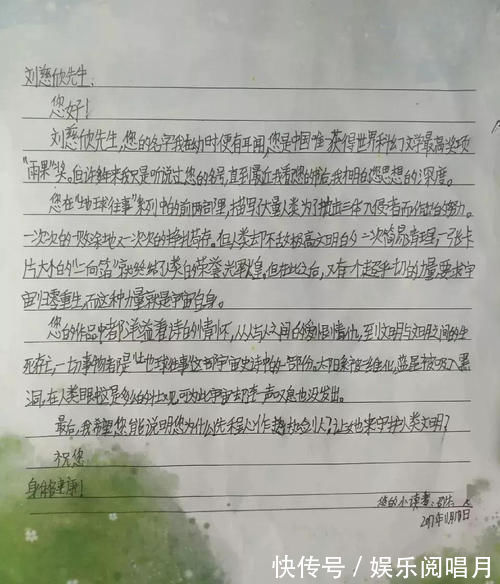 刘慈欣先生:
您好!
刘慈欣先生,您的名字我在幼时便有耳闻,您是中国唯一获得世界科幻文学最高奖项
"雨果"奖。但许多年来我只是听说过您的名号,直到最近我看您的书后我才明白您思想的深度。
您在"地球往事"系列中的前两部里,描写了大量人类为了抵抗三体入侵者而做出的努力。
一次次的一败涂地又一次次的挣扎苟存。但人类却不敌极高文明的二次简易清理,一张卡
片大小的"二向箔"宣就终结了人类的荣誉光辉煌。但在此之后,又有个超乎一切的力量要求宇
宙归零重生,而这种力量就是宇宙自身。
您的作品中都洋溢着诗的情怀,从人与人之间的爱恨情仇,到文明与文明之间的生
死存亡,一切事物都是"地球往事"这部宇宙史诗中的一部份。太阳系被二维化,蓝星被吸入黑
洞,在人类眼中这是多么的壮观,可为此宇宙却连声叹息也没发出。
最后,我希望您能说明您为什么先程心作为执剑人?让她来守护人类文明?
祝您
身体健康!
您的小读者:
2017年11月19日
快传号/娱乐阅唱月